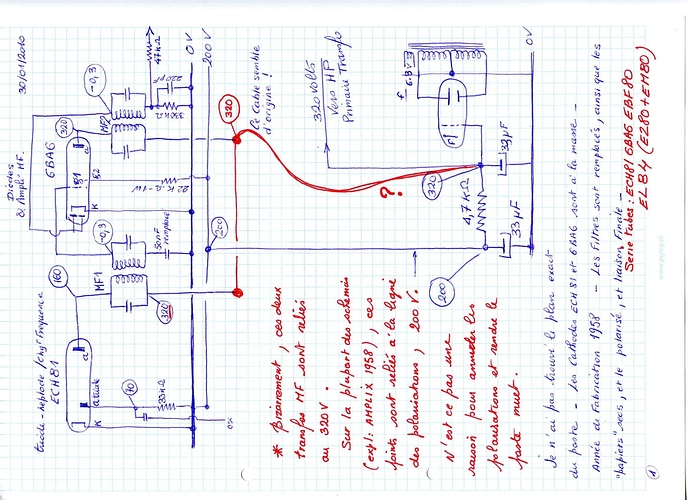 30/01/2010
Diodes
& Ampli MF.
6BA6
Triode-heptode/Changt fréquence
ECH81
-0,3
MF2
320
a
g1
g2
K
47KΩ
220pF
330KΩ
22KΩ-1W
0V
200V
160
a
a triode
K
-0,3
MF1
320
50nF
remplacé
70
33KΩ
osc
200
320
Ce Cable semble
d'origine !
320 volts
Vers HP
Primaire Transfo
f
6.3V
f1
0V
320
33µF
4,7KΩ
33µF
200
?
* Bizarrement, ces deux
transfos MF sont reliés
au 320V.
Sur la plupart des schémas
(expl: AMPLIX 1958), ces
points sont reliés à la ligne
des polarisations, 200 V.
N'est ce pas une
raison pour annuler les
polarisations et rendre le
poste muet.
Je n'ai pas trouvé le plan exact
du poste - Les Cathodes ECH81 et 6BA6 sont à la masse -
Année de Fabrication 1958 - Les Filtres sont remplacés, ainsi que les
"papiers" secs, et le polarisé, et liaison Finale -
Serie Tubes: ECH81 6BA6 EBF80
EL84 (EZ80+EM80)
1